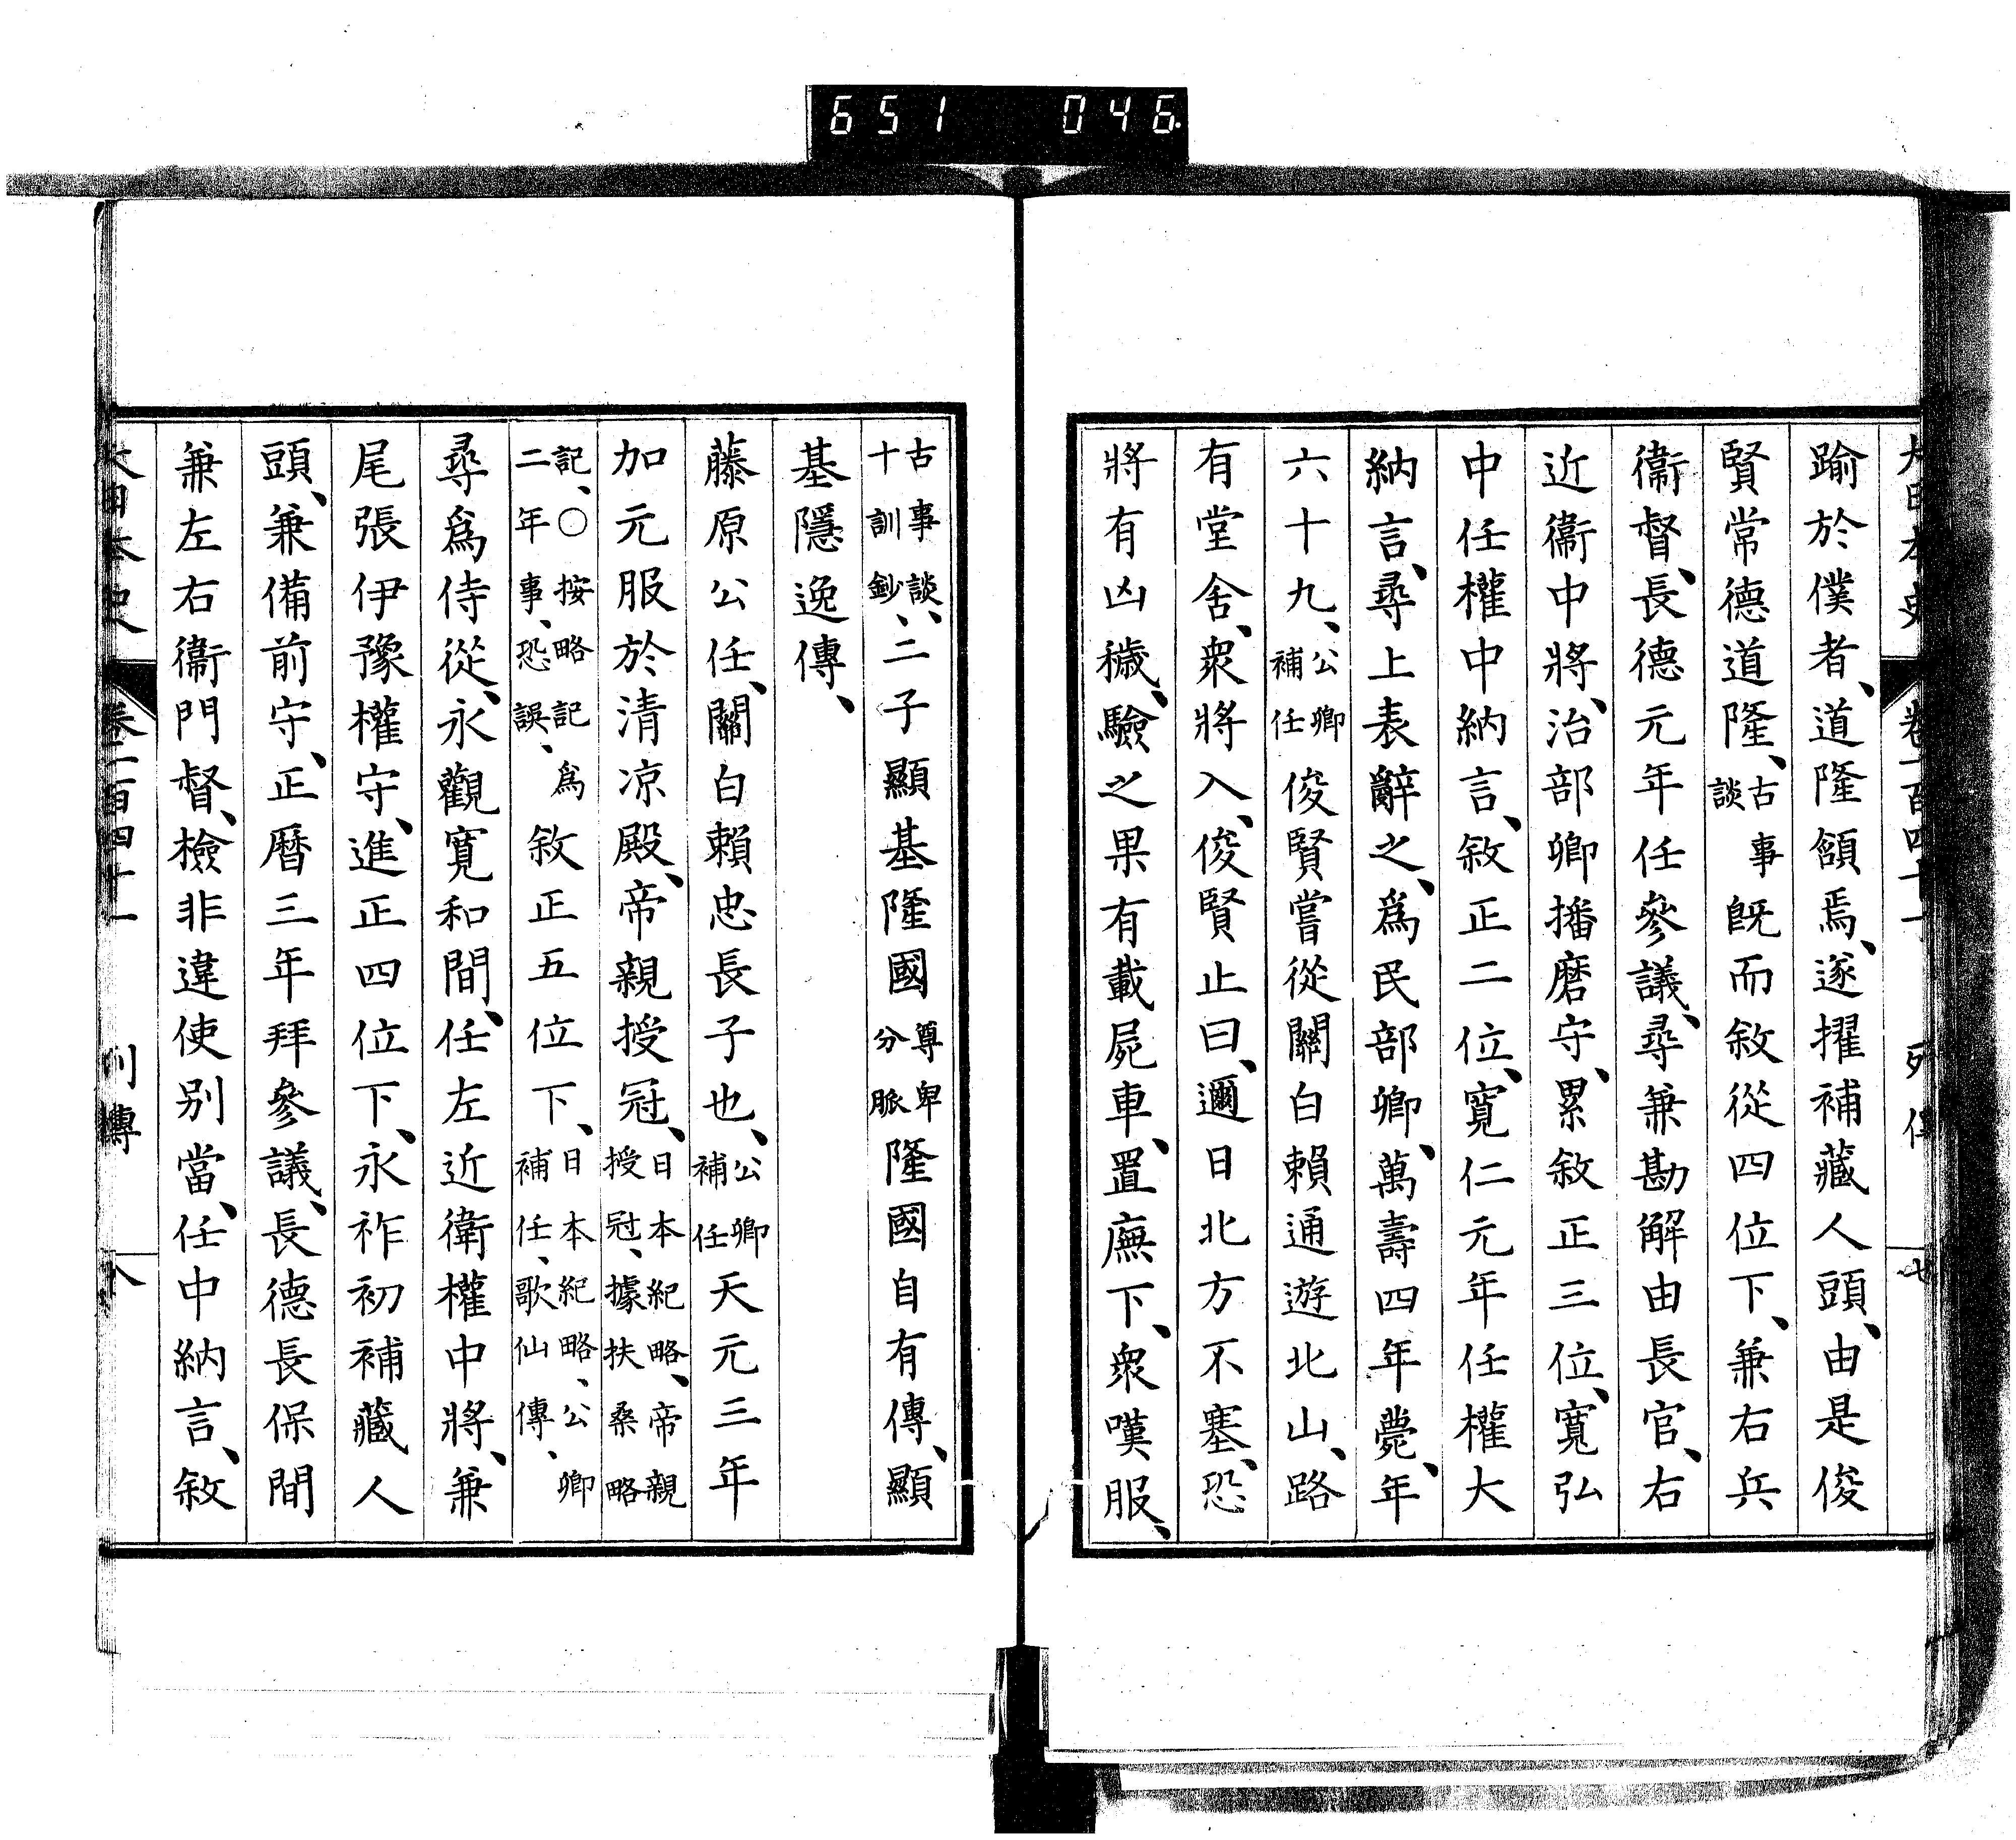 651 046
大日本史 卷一百四十一 列傳 七
踰於僕者、道隆頷焉、遂擢補藏人頭、由是俊
賢常德道隆、古事談既而敘從四位下、兼右兵
衞督、長德元年任參議、尋兼勘解由長官、右
近衞中將、治部卿播磨守、累敘正三位、寬弘
中任權中納言、敘正二位、寬仁元年任權大
納言、尋上表辭之、爲民部卿、萬壽四年薨、年
六十九、公卿補任俊賢嘗從關白賴通遊北山、路
有堂舍、衆將入、俊賢止曰、邇日北方不塞、恐
將有凶穢、驗之果有載屍車、置廡下、衆嘆服、
古事談、十訓鈔、二子顯基隆國尊卑分脈隆國自有傳、顯
基隱逸傳、
藤原公任、關白賴忠長子也、公卿補任天元三年
加元服於清凉殿、帝親授冠、日本紀略、帝親授冠、據扶桑略
記、○按略記爲二年事、恐誤、敘正五位下、日本紀略、公卿補任、歌仙傳、
尋爲侍從、永觀寬和間、任左近衛權中將、兼
尾張伊豫權守、進正四位下、永祚初補藏人
頭、兼備前守、正曆三年拜參議、長德長保間
兼左右衞門督、檢非違使別當、任中納言、敘
大日本史 卷一百四十一 列傳 八